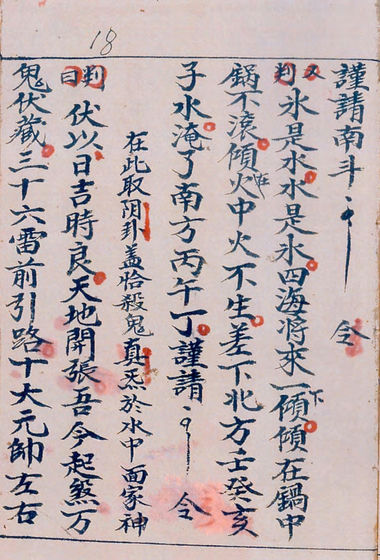 18
謹請南斗 令
又判 氷是水水是氷四海將來一下傾傾在鍋中
鍋不滾傾在火中火不生差下北方壬癸亥
子水淹了南方丙午丁謹請 令
在此取阴卦盖恰殺鬼真炁於水中面家神
判曰 伏以日吉時良天地開張吾今起煞万
鬼伏藏三十六雷前引路十大元帥左右